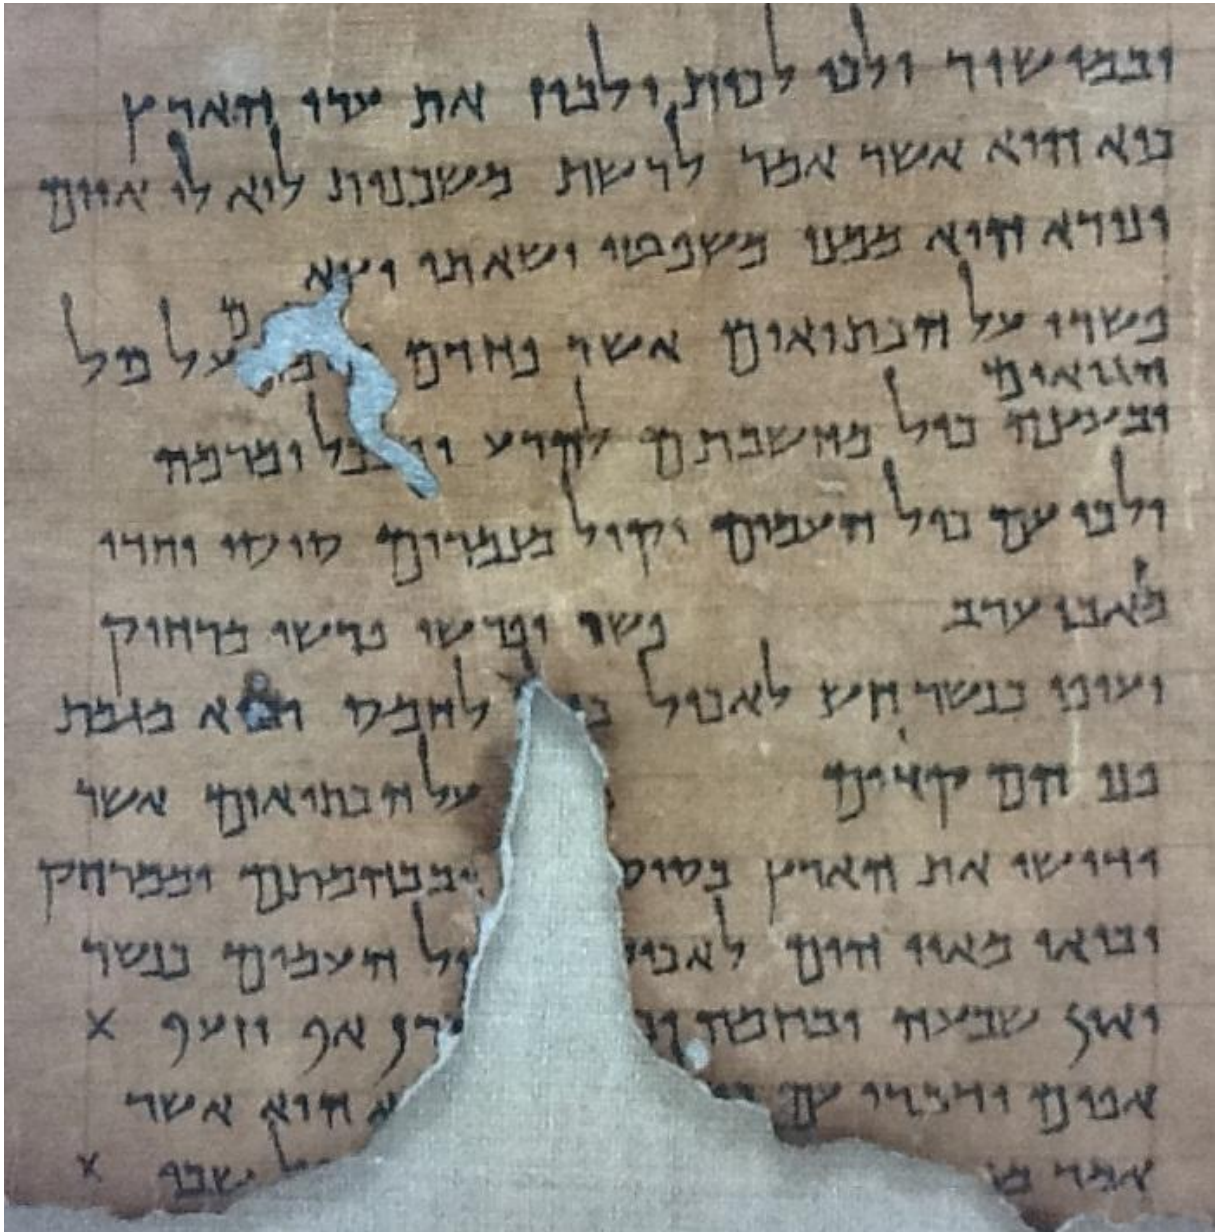 ובמישור ילכו לכות ולבוז את ערי הארץ
כיא הוא אשר אמר לרשת משכנות לוא לו איום
ונורא הוא ממנו משפטו ושאתו יצא
פשרו על הכתיאים אשר פחדם על כל
הגואים
ובעצה כול מחשבתם להרע ומרמה
ילכו עם כול העמים וקול מנמרים סוסו וחדו
מזאבי ערב פשו ופרשו פרשו מרחוק
יעופו כנשר חש לאכול לחמס יבוא מגמת
פני הם קדים על הכתיאים אשר
ידושו את הארץ ובבהמתם וממרחק
יבואו מאיי הים העמים כנשר
ואין שבעה ובחמה אף וזעף X
אפים ידברו עם הוא אשר
אמר X